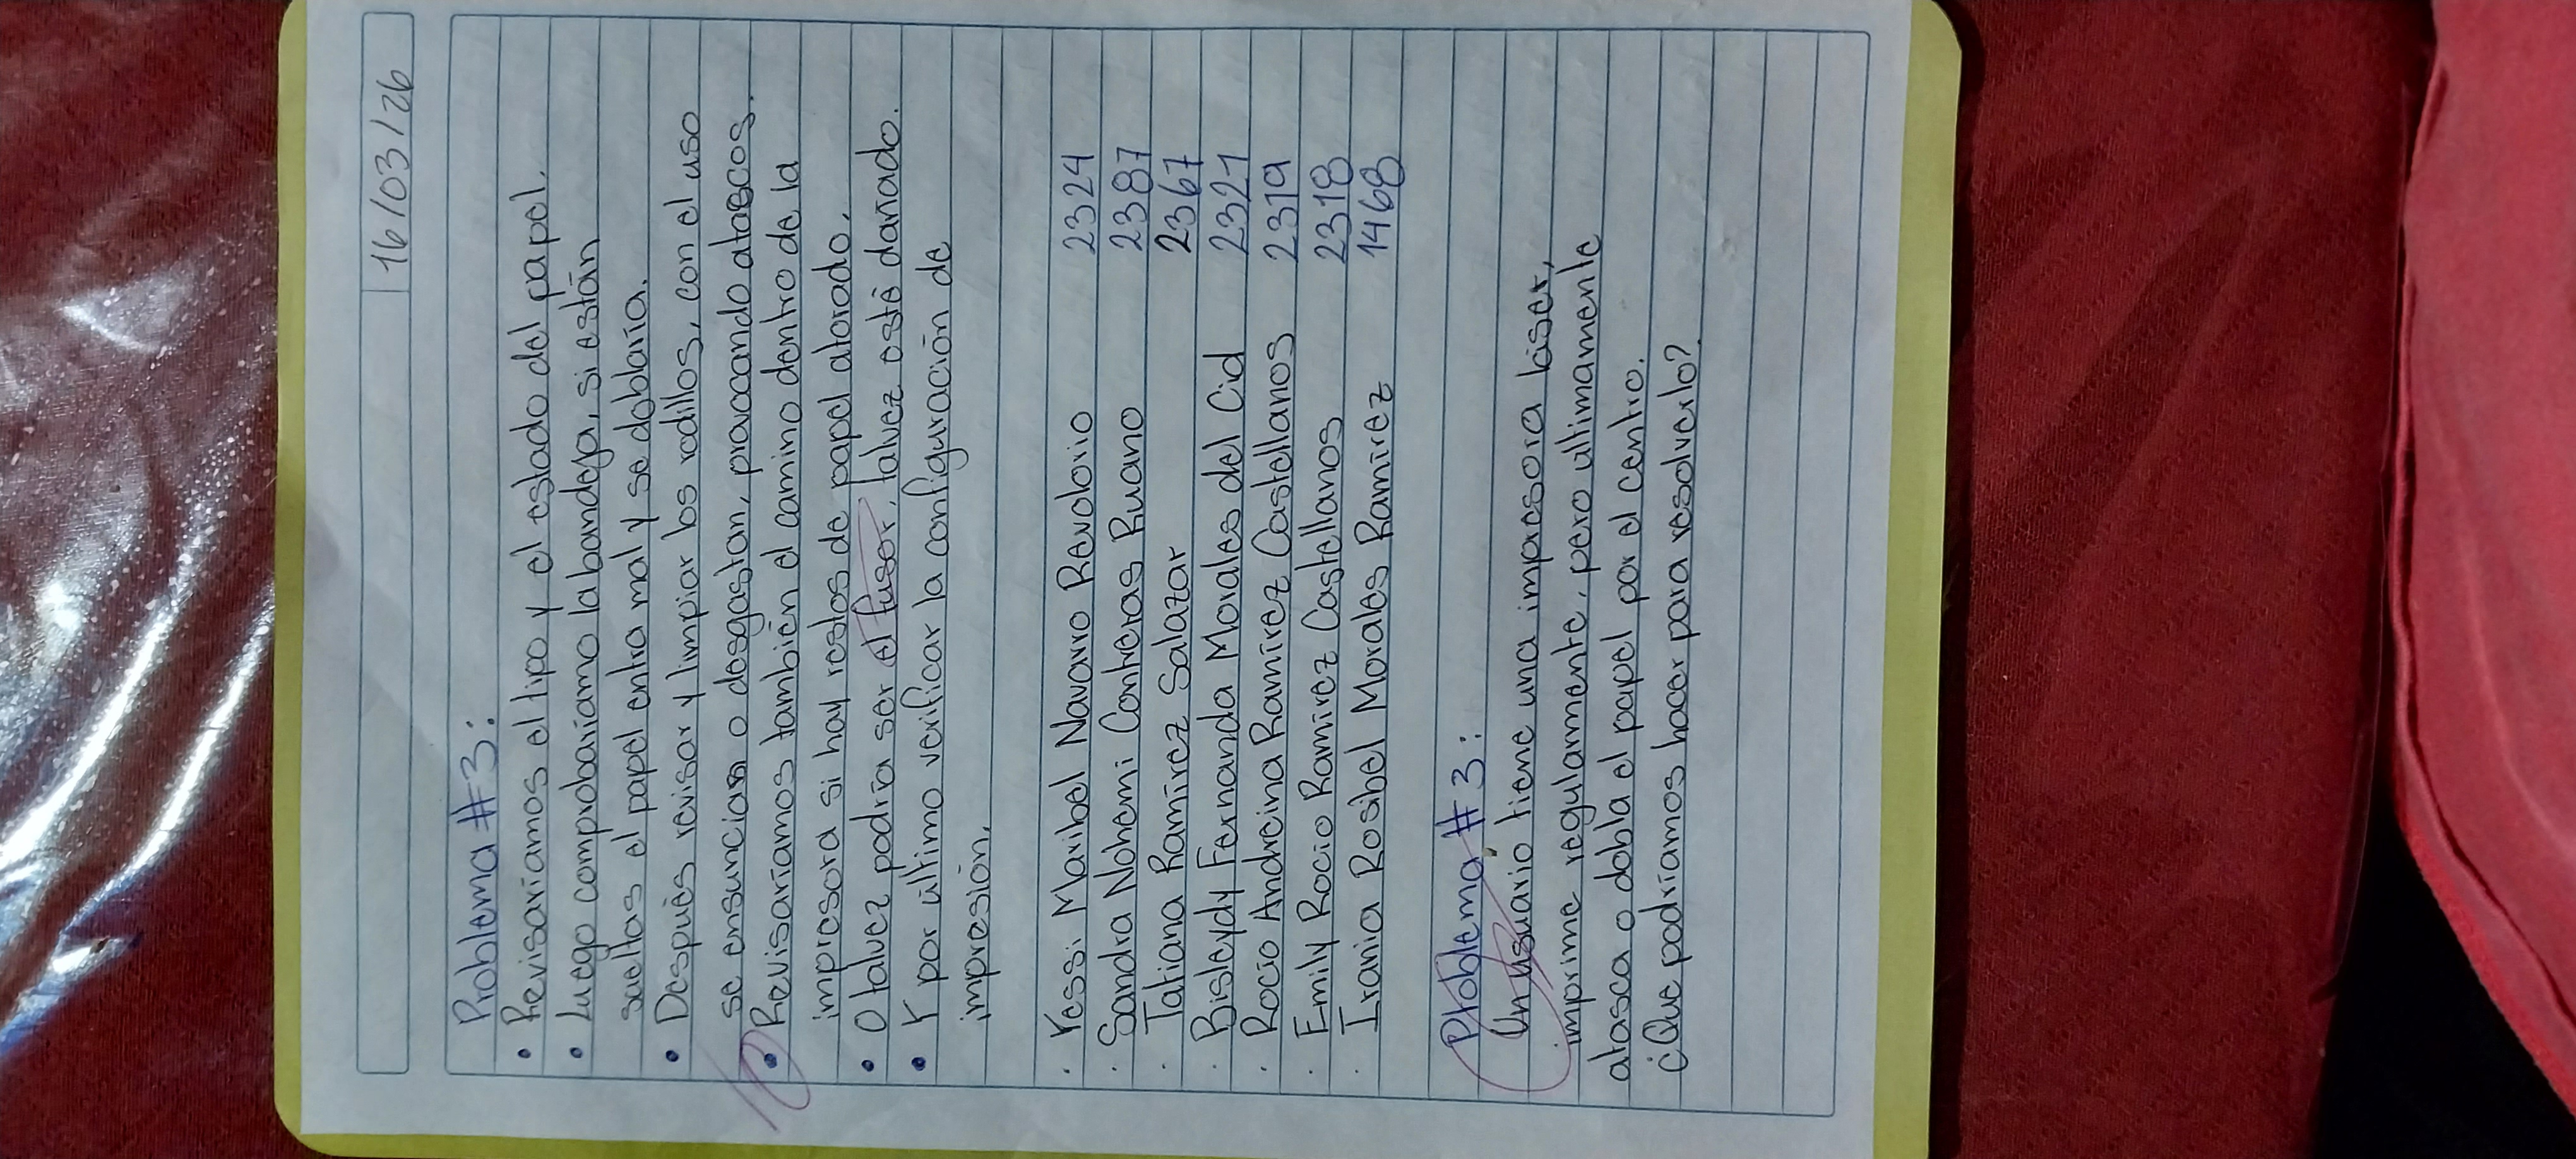 16/03/26
Problema #3:
• Revisaríamos el tipo y el estado del papel.
• Luego comprobaríamo la bandeja, si están
sueltas el papel entra mal y se doblaría.
• Después revisar y limpiar los rodillos, con el uso
se ensucian o desgastan, provocando atascos.
• Revisaríamos también el camino dentro de la
impresora si hay restos de papel atorado.
• O talvez podría ser el fusor, talvez esté dañado.
• Y por último verificar la configuración de
impresión.
· Yessi Maribel Navarro Revolorio 2324
· Sandra Nohemi Contreras Ruano 2387
· Tatiana Ramírez Salazar 2367
· Bisleydy Fernanda Morales del Cid 2321
· Rocío Andreina Ramírez Castellanos 2319
· Emily Rocio Ramírez Castellanos 2318
· Irania Rosibel Morales Ramírez 1468
Problema #3:
Un usuario tiene una impresora láser,
imprime regulamente, pero ultimamente
atasca o dobla el papel por el centro.
¿Que podríamos hacer para resolverlo?
10